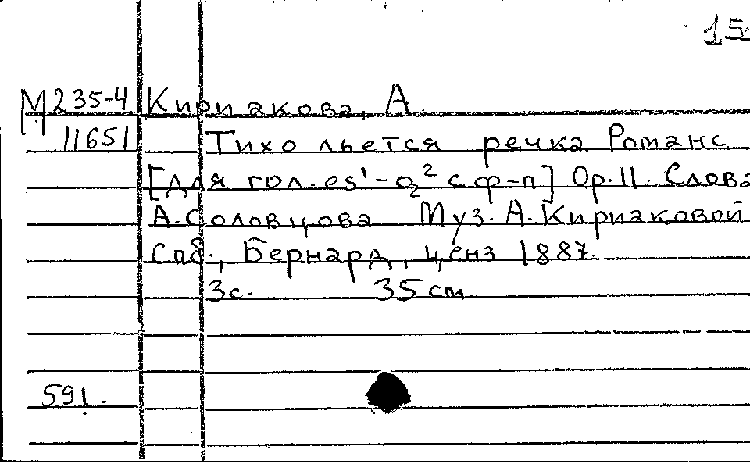 15
М 235-4 Кириакова, А.
11651 Тихо льется речка Романс
[Для гол. es¹-g² с ф-п] Op.11. Слова
А. Соловцова Муз. А. Кириаковой
Спб., Бернард, ценз 1887.
3с. 35 cm
591.